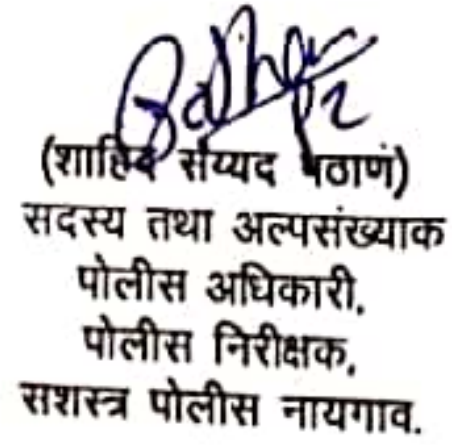 (शाहिद सय्यद पठाण)
सदस्य तथा अल्पसंख्याक
पोलीस अधिकारी,
पोलीस निरीक्षक,
सशस्त्र पोलीस नायगाव.